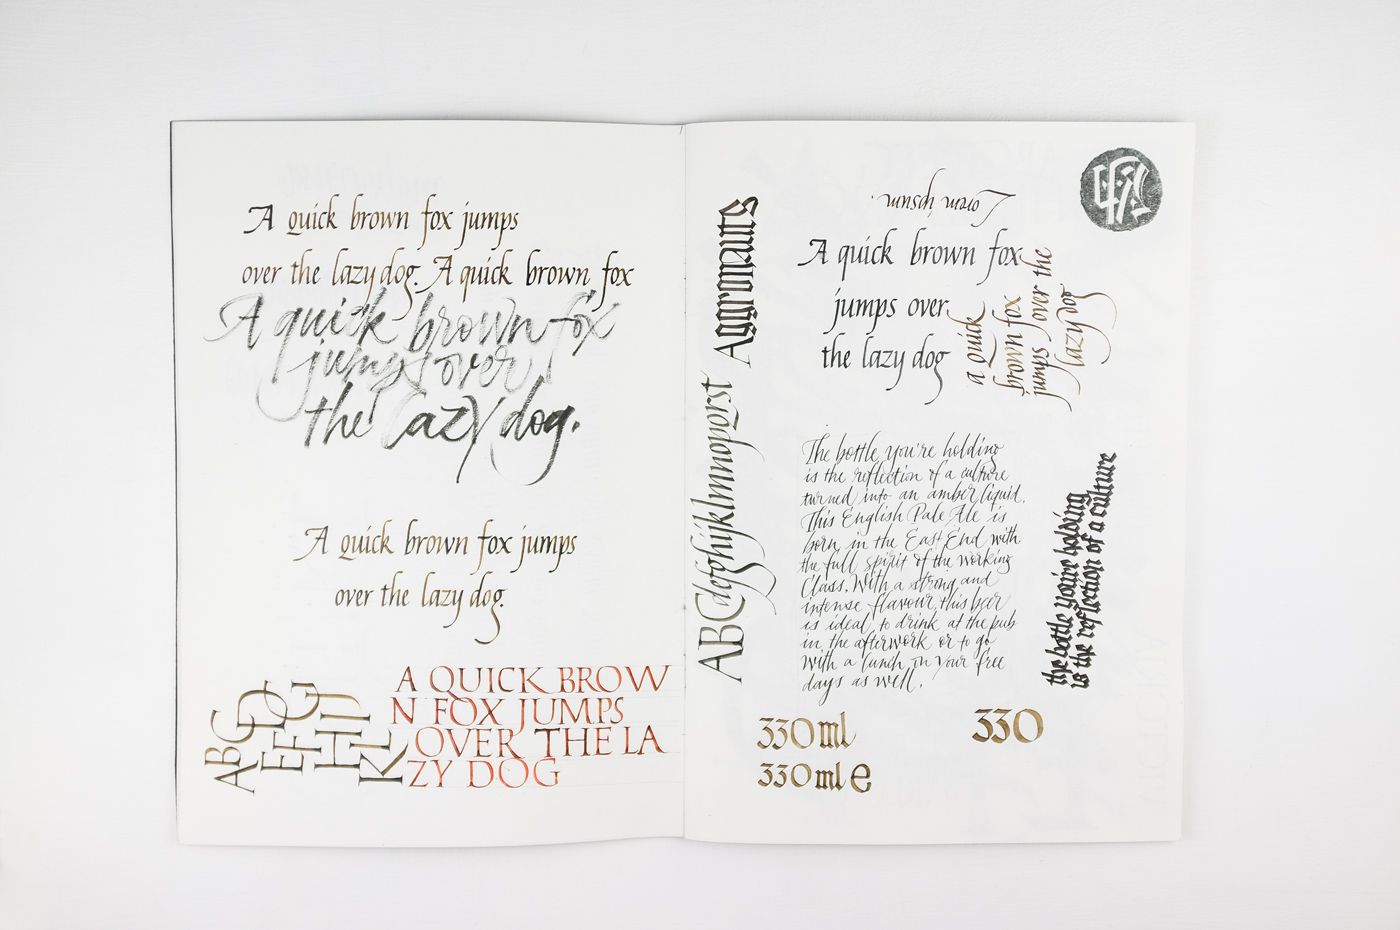 A quick brown fox jumps
over the lazy dog. A quick brown fox
A quick brown fox
jumps over
the lazy dog.
A quick brown fox jumps
over the lazy dog.
ABCD
EFG
HIJ
KL
A QUICK BROW
N FOX JUMPS
OVER THE LA
ZY DOG
Aggronauts
ABCdefghijklmnopqrst
Lorem ipsum.
A quick brown fox
jumps over
the lazy dog
a quick
brown fox
jumps over the
lazy dog
The bottle you're holding
is the reflection of a culture
turned into an amber liquid.
This English Pale Ale is
born in the East End with
the full spirit of the working
Class. With a strong and
intense flavour, this beer
is ideal to drink at the pub
in the afterwork or to go
with a lunch on your free
days as well.
the bottle you're holding
is the reflection of a culture
330 ml
330 ml e
330